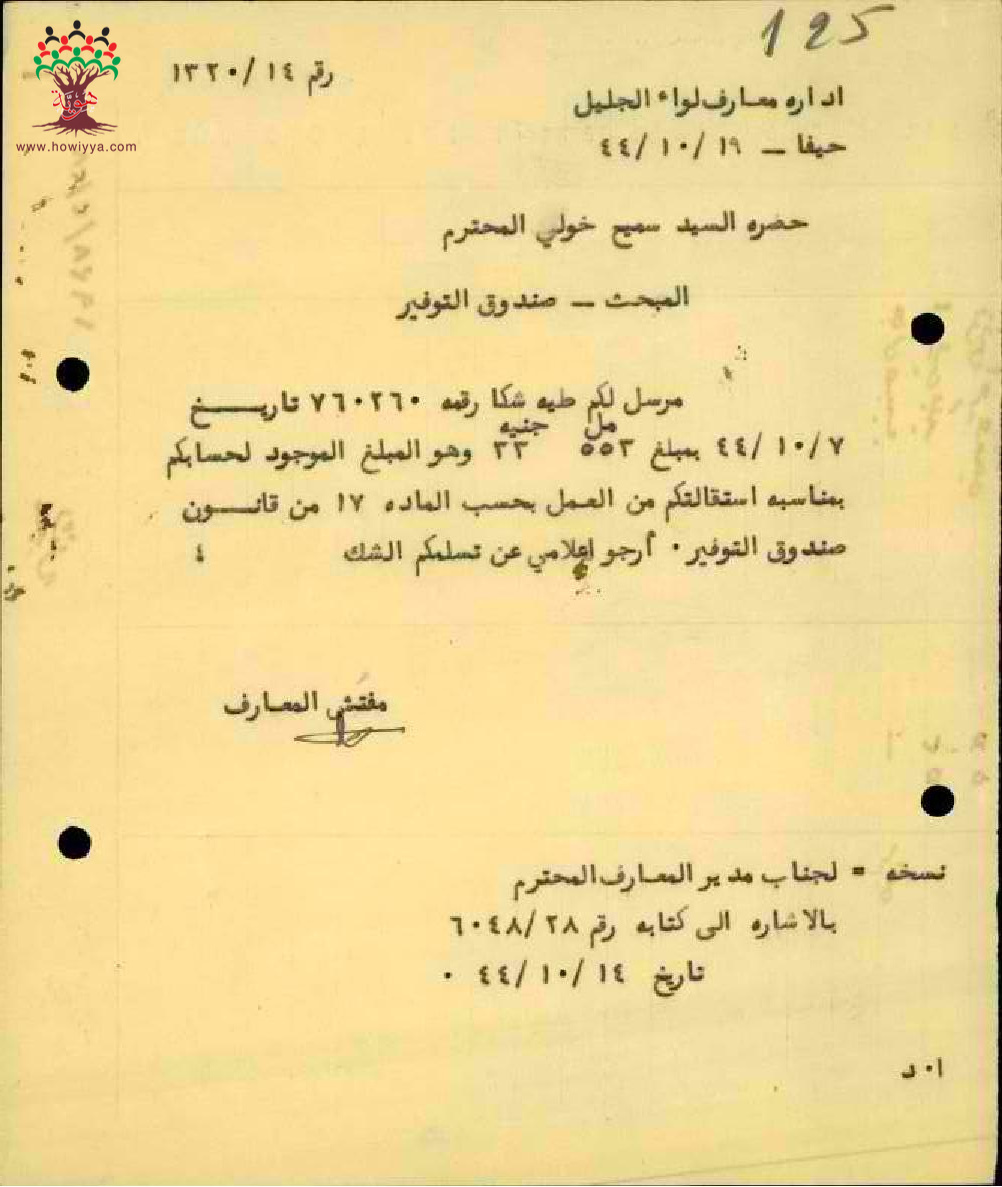 125
رقم ١٤/ ١٣٢٠
اداره معارف لواء الجليل
حيفا – ١٩ /١٠ /٤٤
هوية
www.howiyya.com
حضره السيد سميح خولي المحترم
المبحث – صندوق التوفير
مرسل لكم طيه شكا رقمه ٧٦٠٢٦٠ تاريخ
مل جنيه
٧ /١٠ /٤٤ بمبلغ ٥٥٣ ٣٣ وهو المبلغ الموجود لحسابكم
بمناسبه استقالتكم من العمل بحسب الماده ١٧ من قانون
صندوق التوفير٠ أرجو إعلامي عن تسلمكم الشك ٤
مفتش المعارف
نسخه = لجناب مدير المعارف المحترم
بالاشاره الى كتابه رقم ٢٨ /٦٠٤٨
تاريخ ١٤ /١٠ /٤٤ ٠
ا٠ د